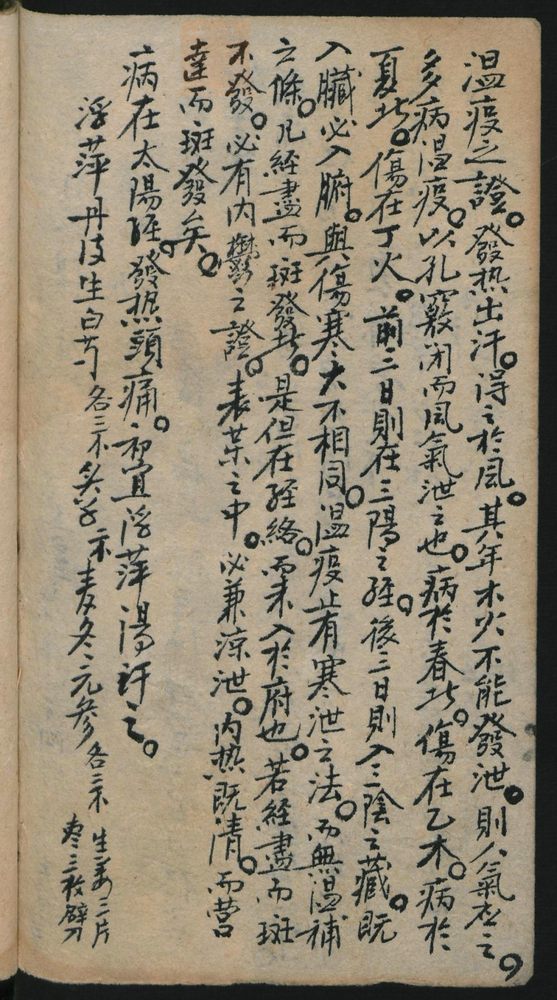 温疫之證。發热出汗。得之於風。其年木火不能發泄。則人氣应之。
多病温疫。以孔竅闭而風氣泄之也。病於春北。傷在乙木。病於
夏北。傷在丁火。前三日則在三陽之经。後三日則入三陰之藏。既
入臟必入腑。與傷寒大不相同。温疫止有寒泄之法。而無温補
之條。凡经盡而斑發北。是但在经络。而未入於府也。若经盡而斑
不發。必有内鬱之證。表藥之中。必兼凉泄。内热既清。而营
達而斑發矣。
病在太陽经。發热頭痛。初宜浮萍湯汗之。
浮萍 丹皮 生白芍 各三 炙草 麦冬 元參 各三 生姜三片
枣三枚劈